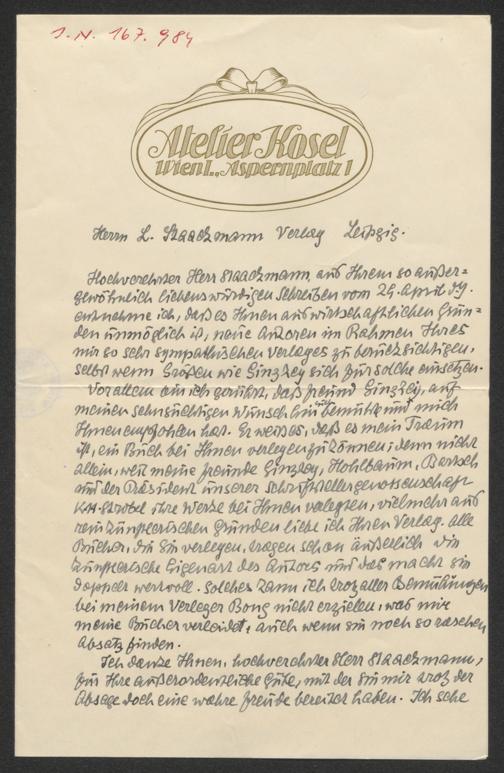 J. N. 167.984
Atelier Kosel
Wien I., Aspernplatz 1
Herrn L. Staackmann Verlag Leipzig.
Hochverehrter Herr Staackmann aus Ihrem so außer=
gewöhnlich liebenswürdigen Schreiben vom 29. April
entnehme ich, daß es Ihnen aus wirtschaftlichen Grün=
den unmöglich ist, neue Autoren im Rahmen Ihres
mir so sehr sympathischen Verlages zu berücksichtigen,
selbst wenn Größen wie Ginzkey sich für solche einsetzen.
Vor allem bin ich gerührt, daß Freund Ginzkey, auf
meinen sehnsüchtigen Wunsch hin bemüht und mich
Ihnen empfohlen hat. Er weiß es, daß es mein Traum
ist, ein Buch bei Ihnen verlegen zu können; denn nicht
allein, weil meine Freunde Ginzkey, Hohlbaum, Bartsch
und der Präsident unserer Schriftstellergenossenschaft
KH Strobel ihre Werke bei Ihnen verlegten, vielmehr aus
rein künstlerischen Gründen liebe ich Ihren Verlag. Alle
Bücher, die Sie verlegen, tragen schon äußerlich die
künstlerische Eigenart des Autors und das macht sie
doppelt wertvoll. Solches kann ich trotz aller Bemühungen
bei meinem Verleger Bong nicht erzielen, was mir
meine Bücher verleidet, auch wenn sie noch so raschen
Absatz finden.
Ich danke Ihnen, hochverehrter Herr Staackmann,
für Ihre außerordentliche Güte, mit der Sie mir trotz der
Absage doch eine wahre Freude bereitet haben. Ich sehe